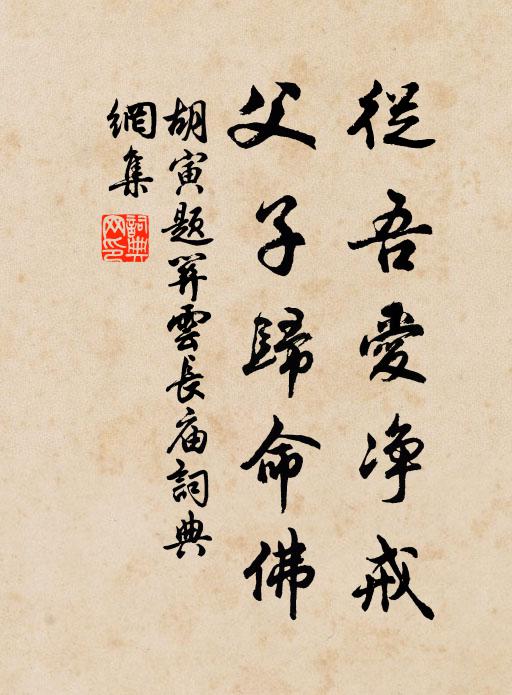 從吾愛净戒
父子歸命佛
胡寅題关雲長庙詞典
網集
詞典網印